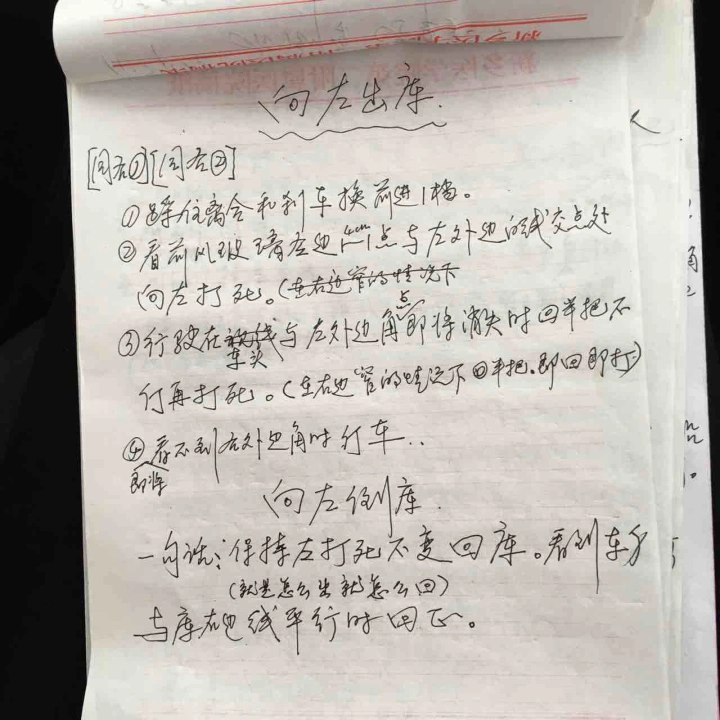 向左出库.
[同右①][同右②]
①踩住离合和刹车换前进1档。
②看前风玻璃左边 点与左外边的线交点处
向左打死。(在右边窄的情况下
点
③行驶在 与左外边角即将消失时回半把不
车头
行再打死。(在右边窄的情况下回半把.即回即打)
④看不到右外边角时行车..
即将
向左倒库.
一句话:保持左打死不变回库。看到车身
(就是怎么出就怎么回)
与库右边线平行时回正。